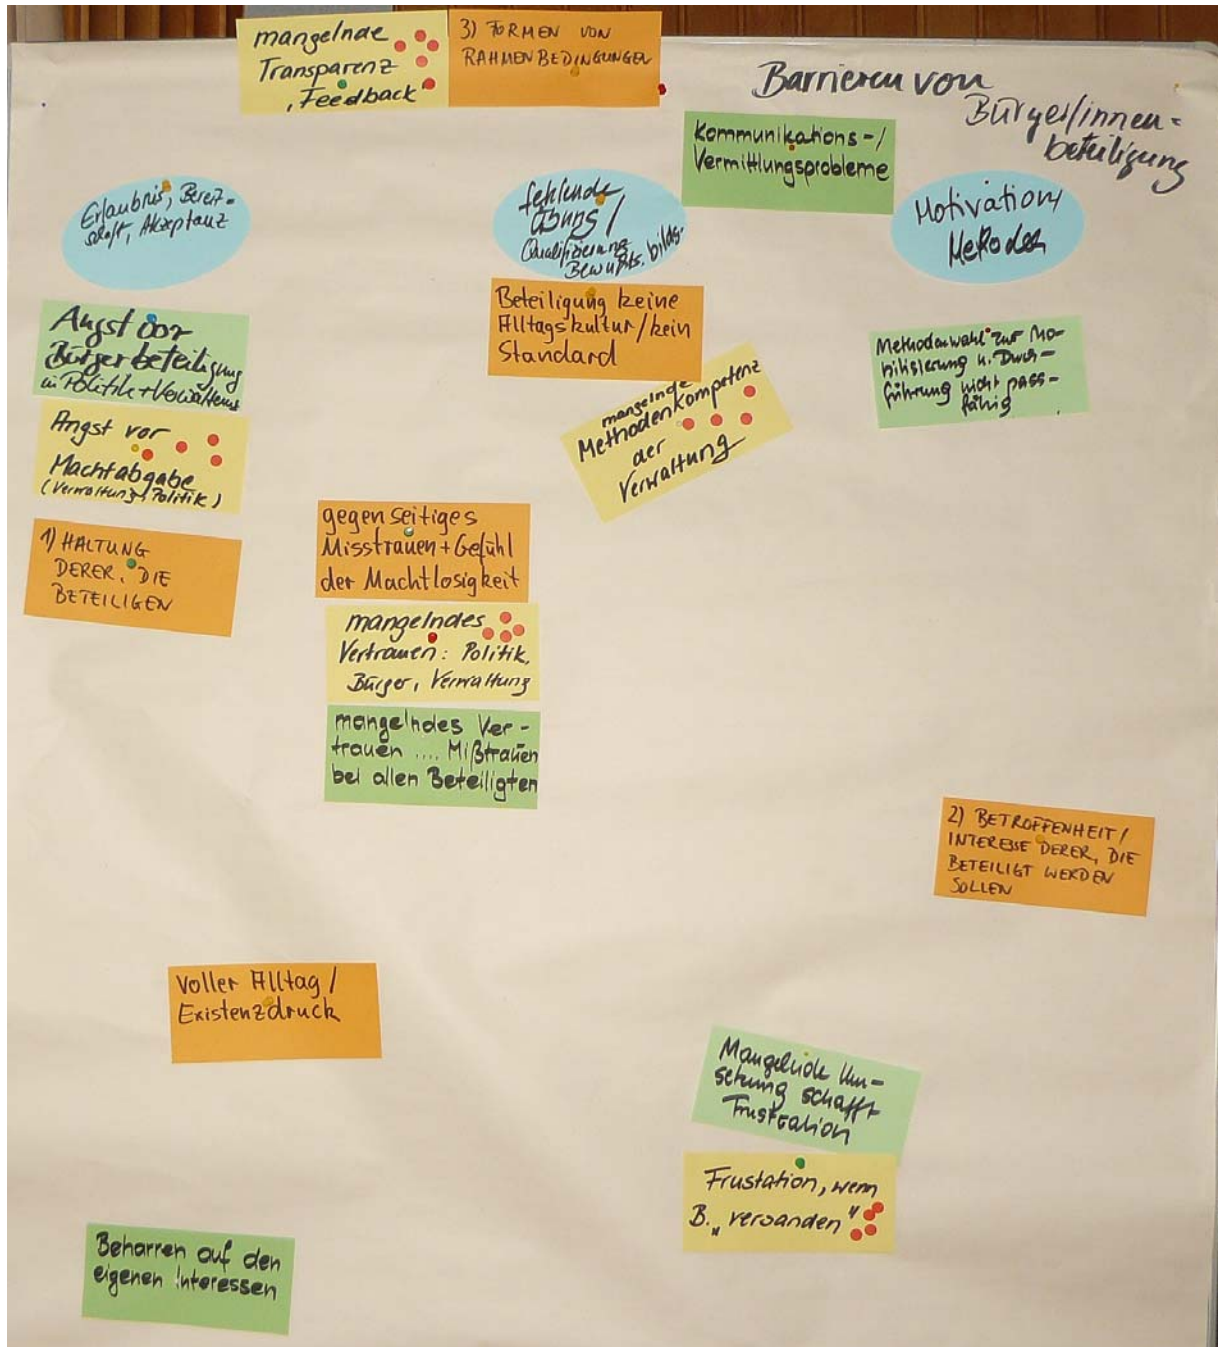 mangelnde
Transparenz
„Feedback"
3) FORMEN VON
RAHMENBEDINGUNGEN
Barrieren von
Bürger/innen-
beteiligung
Kommunikations-/
Vermittlungsprobleme
Erlaubnis, Bereit-
schaft, Akzeptanz
fehlende
Übung /
Qualifizierung
Bewußts.bildg.
Motivation/
Methoden
Angst vor
Bürgerbeteiligung
in Politik + Verwaltung
Beteiligung keine
Alltagskultur/kein
Standard
Methodenwahl zur Mo-
bilisierung u. Durch-
führung nicht pass-
fähig
mangelnde
Methodenkompetenz
der
Verwaltung
Angst vor
Machtabgabe
(Verwaltung, Politik)
1) HALTUNG
DERER, DIE
BETEILIGEN
gegenseitiges
Misstrauen + Gefühl
der Machtlosigkeit
mangelndes
Vertrauen: Politik,
Bürger, Verwaltung
mangelndes Ver-
trauen .... Mißtrauen
bei allen Beteiligten
2) BETROFFENHEIT/
INTERESSE DERER, DIE
BETEILIGT WERDEN
SOLLEN
Voller Alltag /
Existenzdruck
Mangelnde Um-
setzung schafft
Frustration
Frustation, wenn
B. „versanden"
Beharren auf den
eigenen Interessen